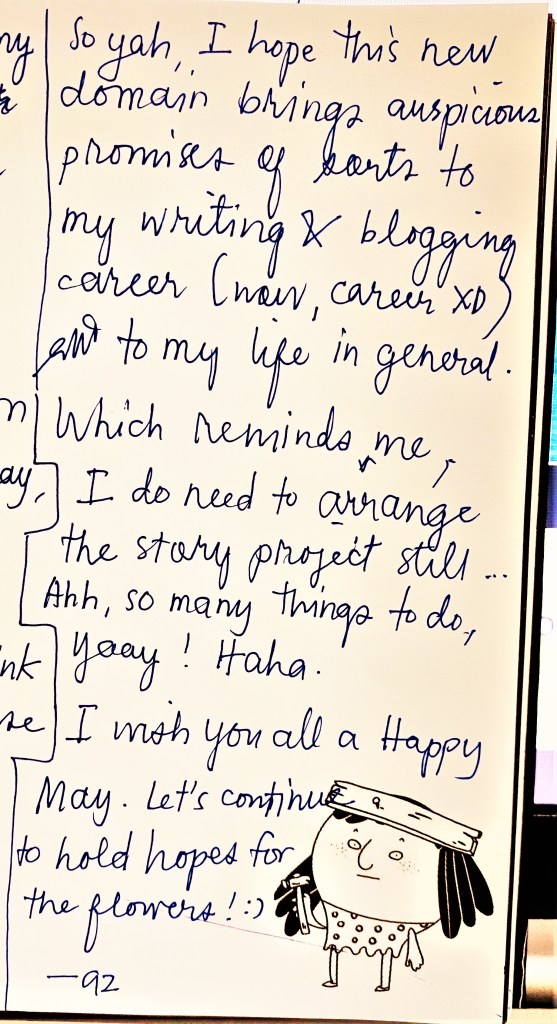 ny
So yah, I hope this new
domain brings auspicious
promises of sorts to
my writing & blogging
career (now, career XD)
and to my life in general.
Which reminds me,
ay,
I do need to arrange
the story project still...
Ahh, so many things to do,
yaay! Haha.
nk
se
I wish you all a Happy
May. Let's continue
to hold hopes for
the flowers! :)